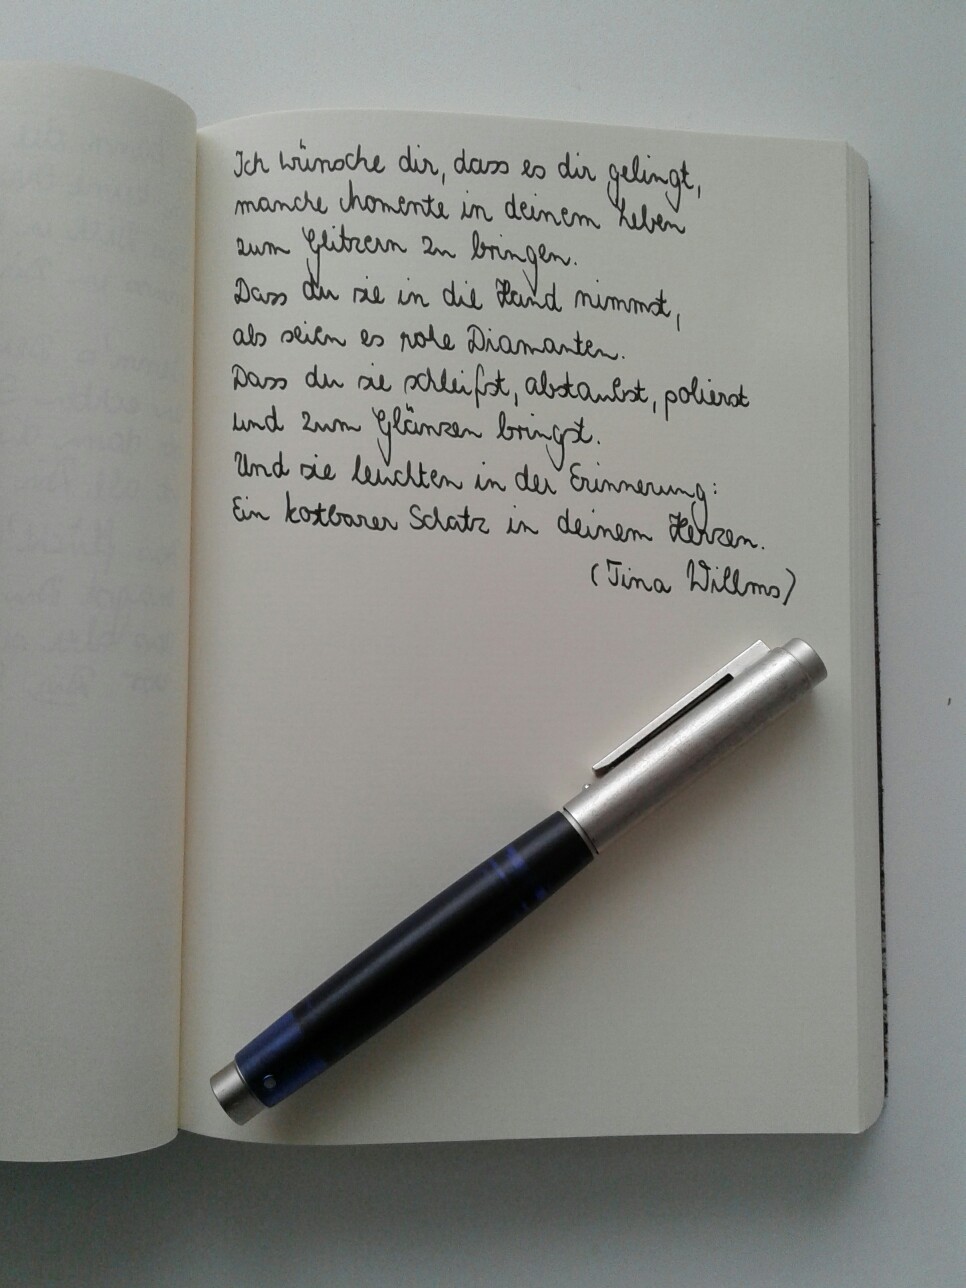 Ich wünsche dir, dass es dir gelingt,
manche Momente in deinem Leben
zum Glitzern zu bringen.
Dass du sie in die Hand nimmst,
als seien es rohe Diamanten.
Dass du sie schleifst, abstaubst, polierst
und zum Glänzen bringst.
Und sie leuchten in der Erinnerung:
Ein kostbarer Schatz in deinem Herzen.
(Tina Willms)